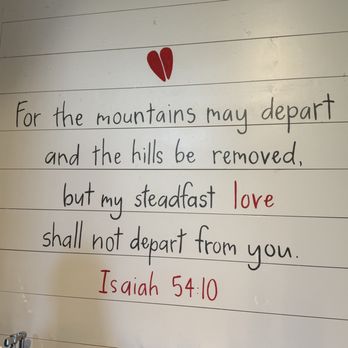 For the mountains may depart
and the hills be removed,
but my steadfast love
shall not depart from you.
Isaiah 54:10